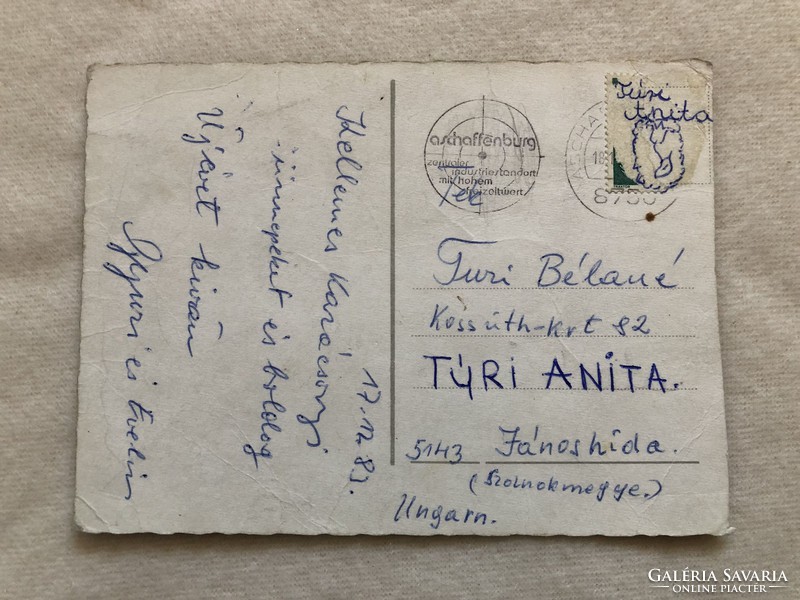 17.12.83.
Kellemes Karácsonyi
ünnepeket és boldog
Újévet kíván
Gyuri és Evelin
aschaffenburg
zentraler
industriestandort
mit hohem
freizeitwert
ASCHA
18
8750
Túri
Anita
Turi Béláné
Kossúth-krt 82
TÚRI ANITA.
5143 Jánoshida.
(Szolnokmegye.)
Ungarn.
GALÉRIA SAVARIA
ONLINE PIACTÉR